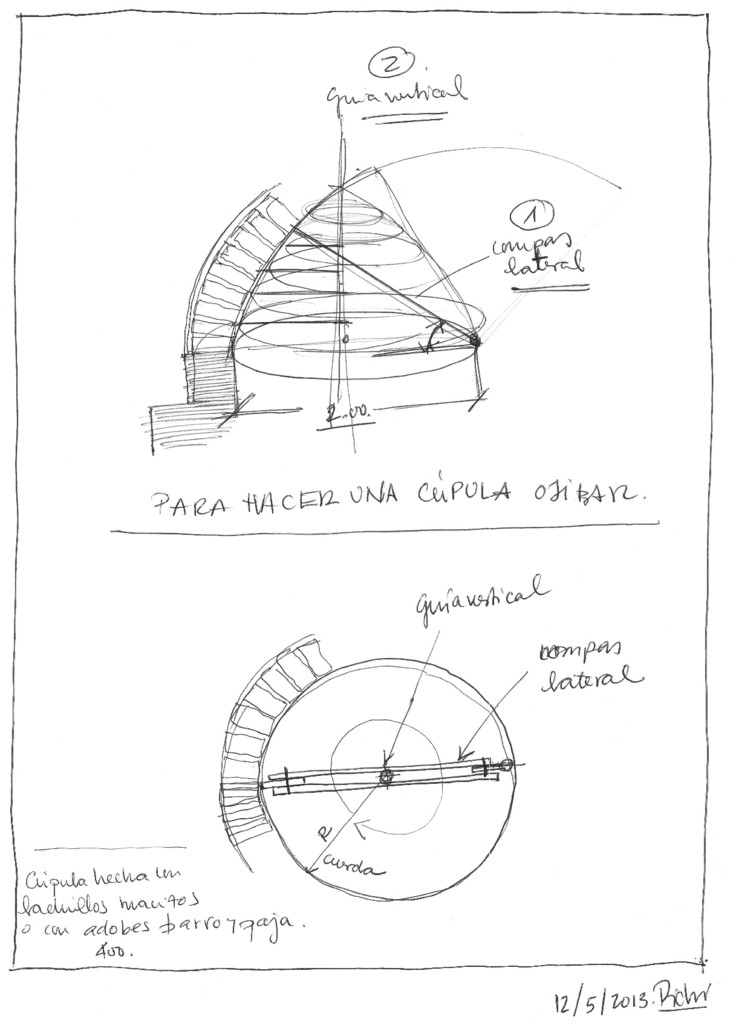 2
guía vertical
1
compas
lateral
2.00.
PARA HACER UNA CÚPULA OJIBAR.
guía vertical
compas
lateral
R
cuerda
Cúpula hecha con
ladrillos macizos
o con adobes barro y paja.
12/5/2013.